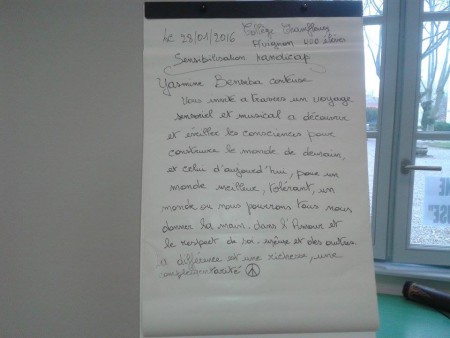 Le 28/01/2016 Collège Chanfleury
Avignon 400 élèves
Sensibilisation handicap
Yasmine Benseba conteuse
Vous invite a travers un voyage
sensoriel et musical a découvrir
et éveiller les consciences pour
construire le monde de demain,
et celui d'aujourd'hui, pour un
monde meilleur, tolérant, un
monde ou nous pourrons tous nous
donner les mains. dans l'Amour et
le respect de soi-même et des autres
a différence est une richesse, une
complémentarité
NE
USE"